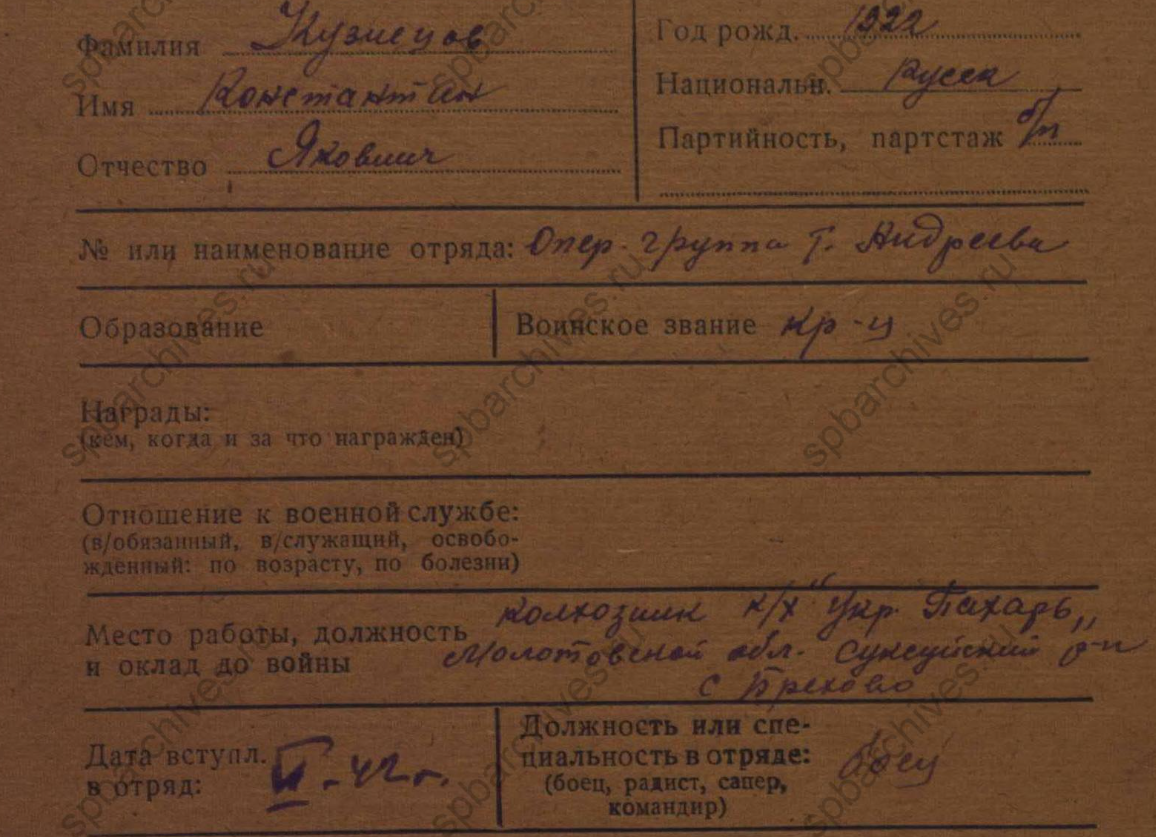 Фамилия Кузнецов
Имя Константин
Отчество Яковлич
Год рожд. 1922
Национальн. Русск
Партийность, партстаж б/п
№ или наименование отряда: Опер. группа Т. Андреева
Образование
Воинское звание кр-ц
Награды:
(кем, когда и за что награжден)
Отношение к военной службе:
(в/обязанный, в/служащий, освобо-
жденный: по возрасту, по болезни)
Место работы, должность
и оклад до войны
колхозник к/х "Укр. Пахарь"
Молотовской обл. р-н
с
Дата вступл.
в отряд:
-42 г.
Должность или спе-
циальность в отряде:
(боец, радист, сапер,
командир)
боец
spbarchives.ru